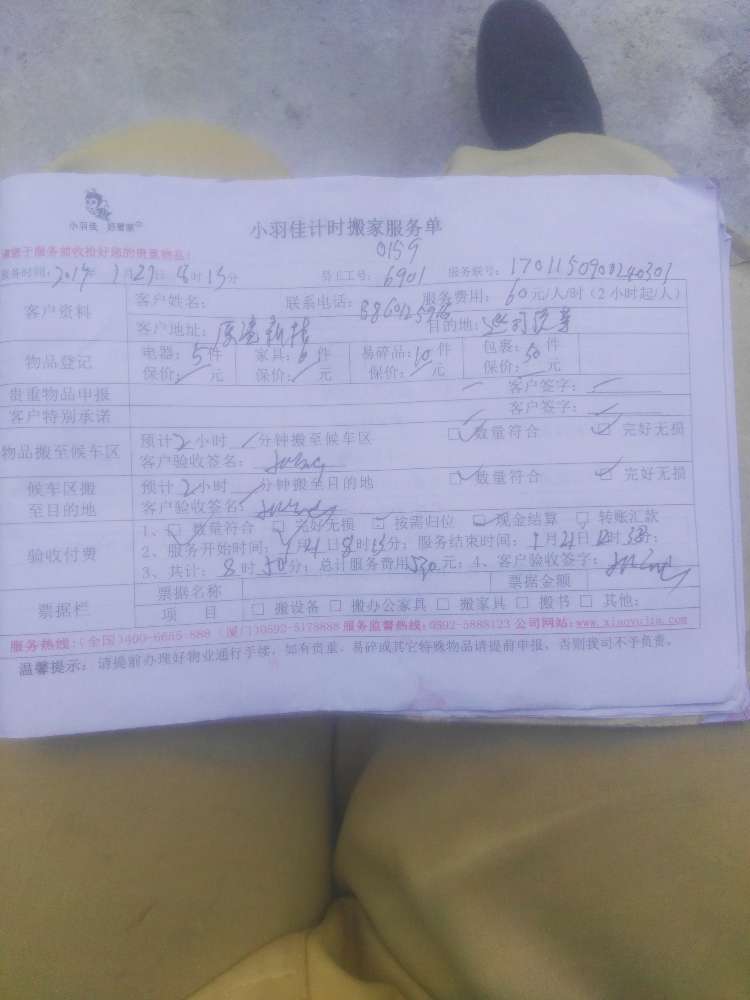 小羽佳 好管家
小羽佳计时搬家服务单
请您于服务前收拾好您的贵重物品!
0159
服务时间: 月 日 8时15分 员工工号: 6901 服务联号: 170115090240301
客户资料
客户姓名: 联系电话: 服务费用: 60元/人/时(2小时起/人)
客户地址: 目的地:
物品登记
电器: 5件 家具: 件 易碎品: 10件 包裹: 50件
保价: 元 保价: 元 保价: 元 保价: 元
贵重物品申报 客户签字:
客户特别承诺 客户签字:
物品搬至候车区
预计2小时 分钟搬至候车区 数量符合 完好无损
客户验收签名:
候车区搬至目的地
预计2小时 分钟搬至目的地 数量符合 完好无损
客户验收签名:
验收付费
1、 数量符合 完好无损 按需归位 现金结算 转账汇款
2、服务开始时间: 月21日8时15分; 服务结束时间: 月21日 时 分;
3、共计: 8时50分; 总计服务费用530元; 4、客户验收签字:
票据栏
票据名称 票据金额
项 目 □ 搬设备 □ 搬办公家具 □ 搬家具 □ 搬书 □ 其他:
服务热线:(全国)400-6665-888 (厦门)0592-5178888 服务监督热线:0592-5888123 公司网站:www.xiaoyujia.com
温馨提示: 请提前办理好物业通行手续, 如有贵重、易碎或其它特殊物品请提前申报, 否则我司不予负责。